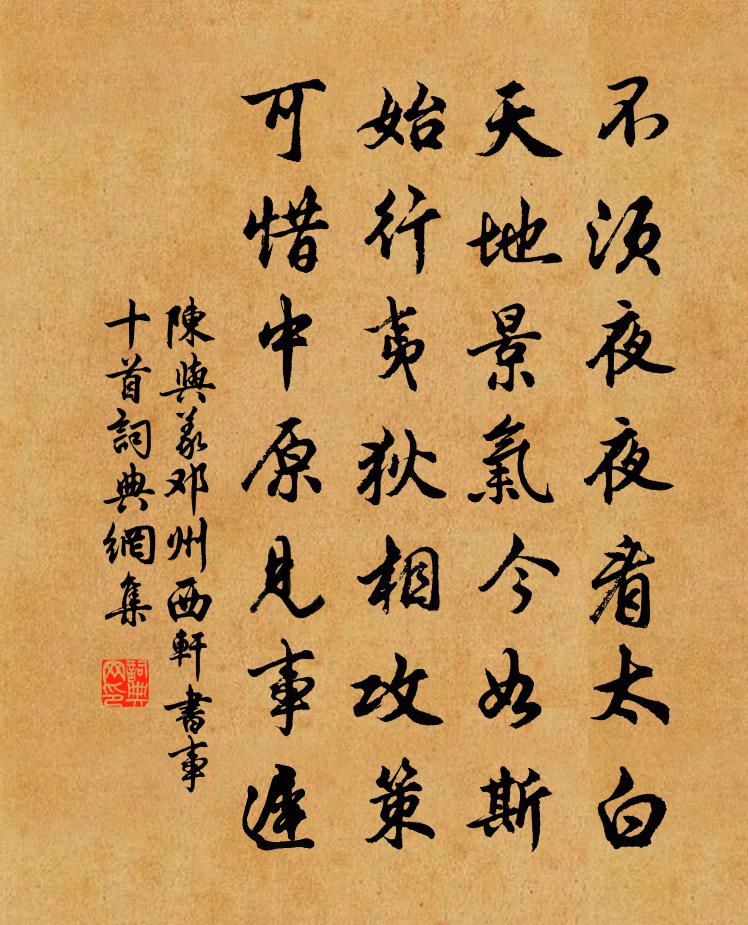 不須夜夜看太白
天地景氣今如斯
始行夷狄相攻策
可惜中原見事遲
陳與義邓州西軒書事
十首詞典網集
詞典网印